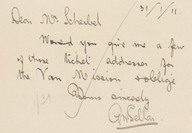 31/1/11.
Dear Mr Scheibel
Would you give me a few
of those ticket addresses for
the Van Mission & oblige
Yours sincerely